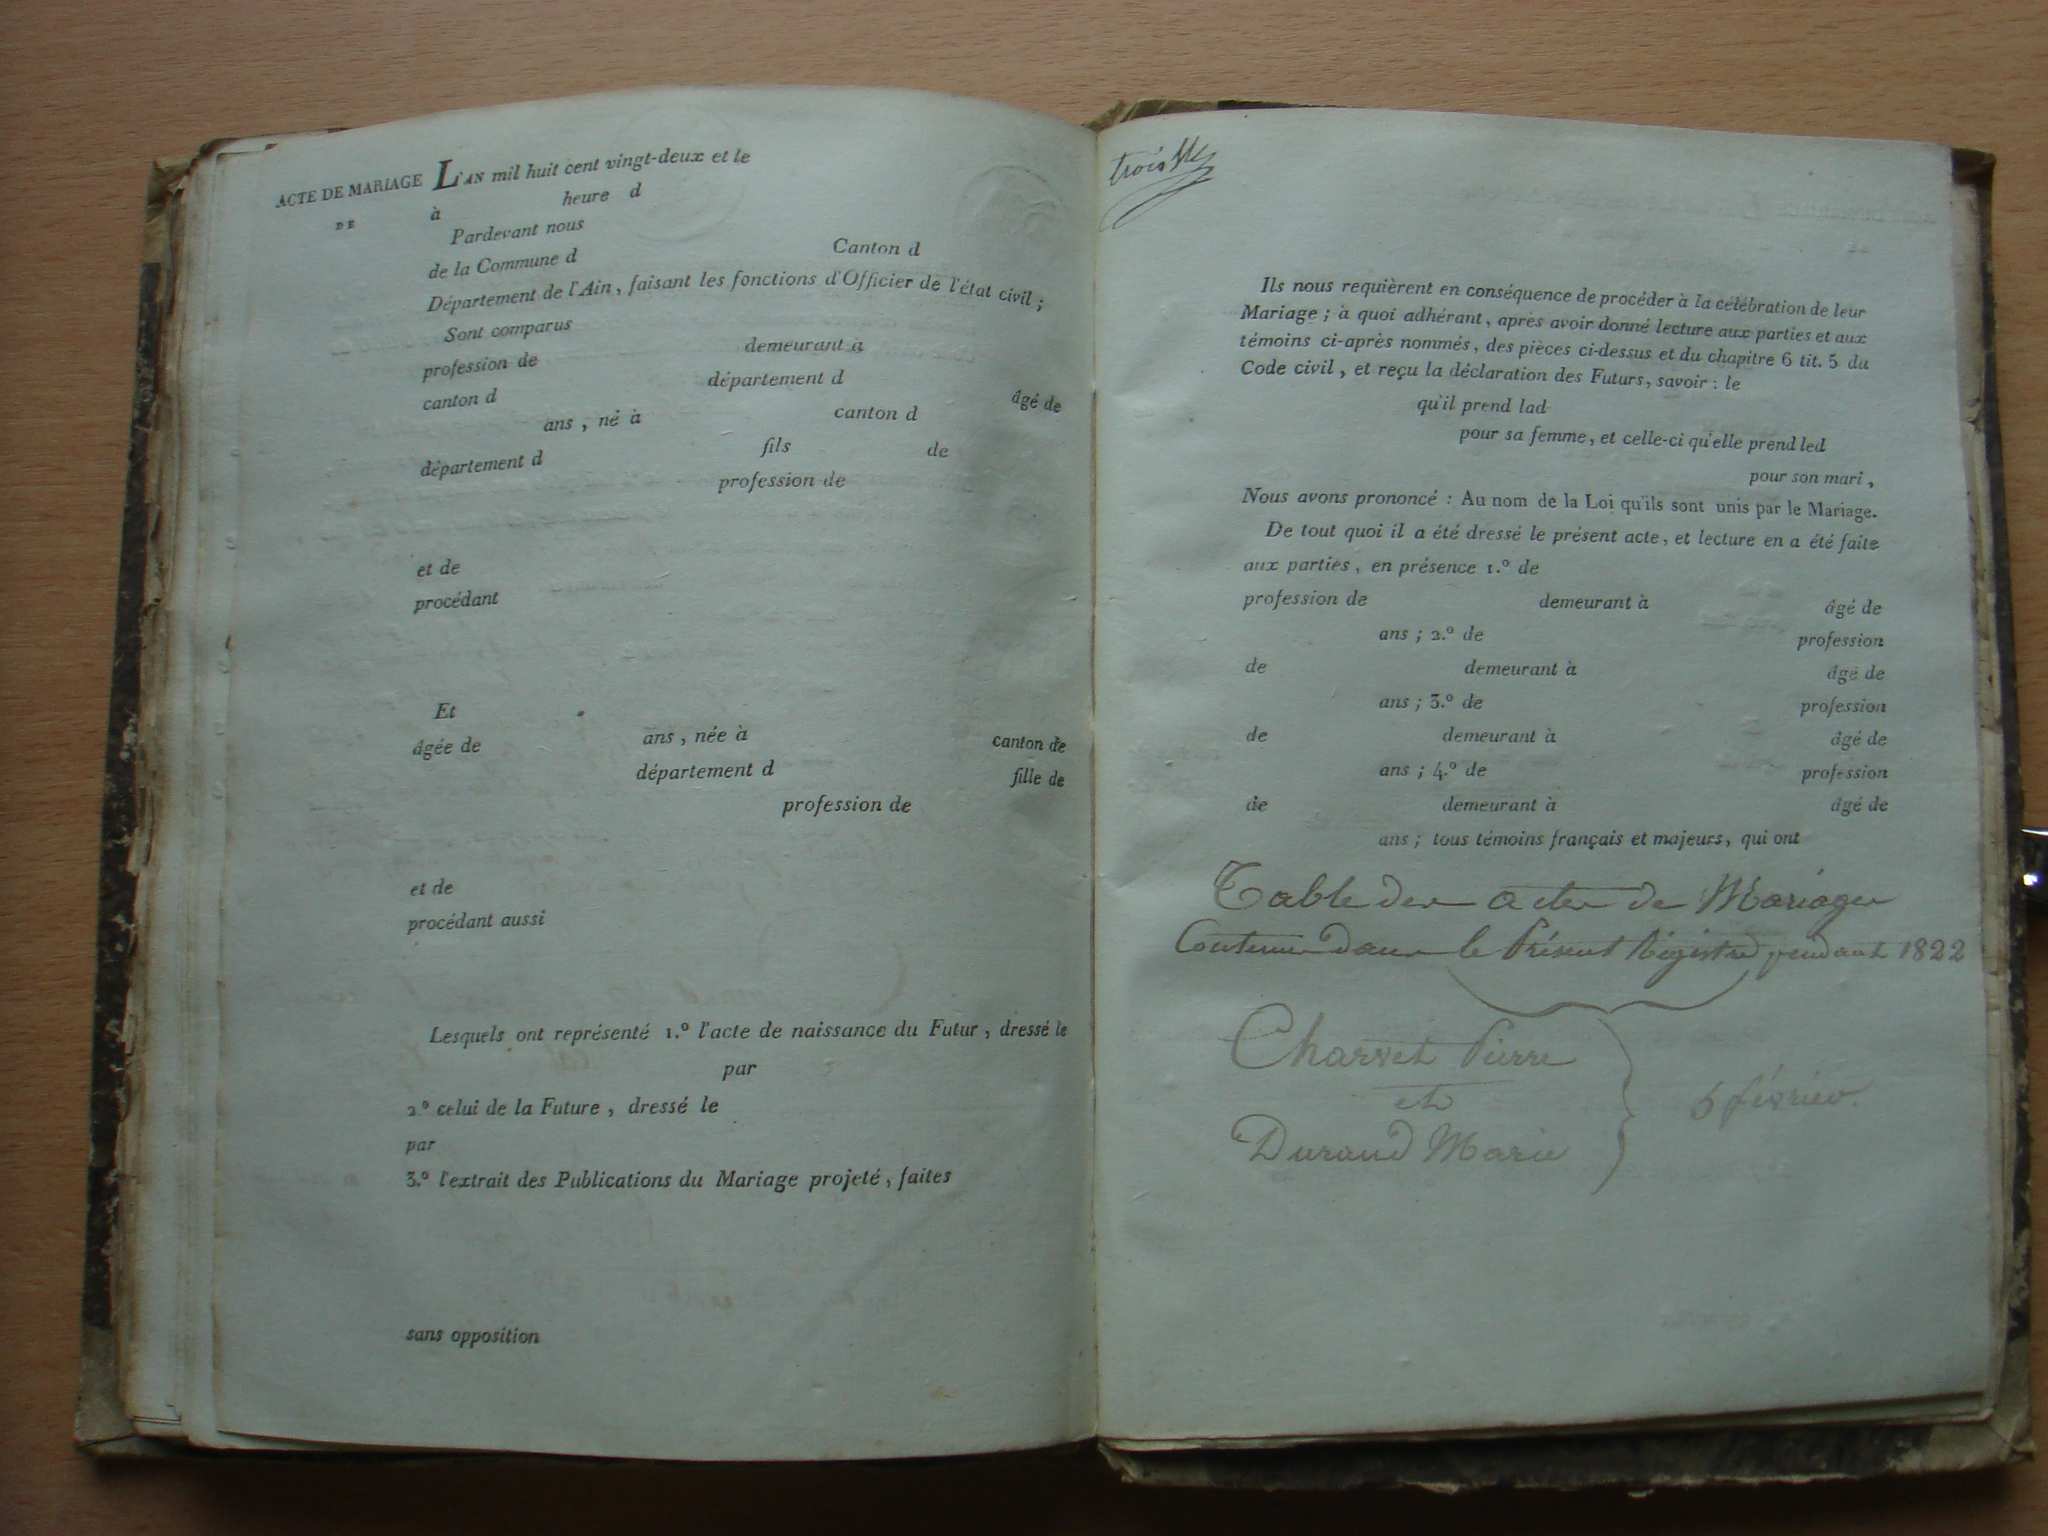 ACTE DE MARIAGE L'AN mil huit cent vingt-deux et le
DE à heure d
Pardevant nous
de la Commune d Canton d
Département de l'Ain, faisant les fonctions d'Officier de l'état civil ;
Sont comparus
profession de demeurant à
canton d département d âgé de
ans, né à canton d
département d fils de
profession de
et de
procédant
Et
âgée de ans, née à canton de
département d fille de
profession de
et de
procédant aussi
Lesquels ont représenté 1.° l'acte de naissance du Futur, dressé le
par
2.° celui de la Future, dressé le
par
3.° l'extrait des Publications du Mariage projeté, faites
sans opposition
trois
Ils nous requièrent en conséquence de procéder à la célébration de leur
Mariage ; à quoi adhérant, après avoir donné lecture aux parties et aux
témoins ci-après nommés, des pièces ci-dessus et du chapitre 6 tit. 5 du
Code civil, et reçu la déclaration des Futurs, savoir : le
qu'il prend lad
pour sa femme, et celle-ci qu'elle prend led
pour son mari,
Nous avons prononcé : Au nom de la Loi qu'ils sont unis par le Mariage.
De tout quoi il a été dressé le présent acte, et lecture en a été faite
aux parties, en présence 1.° de
profession de demeurant à âgé de
ans ; 2.° de profession
de demeurant à âgé de
ans ; 3.° de profession
de demeurant à âgé de
ans ; 4.° de profession
de demeurant à âgé de
ans ; tous témoins français et majeurs, qui ont
Table des actes de Mariages
Contenus dans le Présent Régistre pendant 1822
Charvet Pierre
et
Durand Marie
6 février.